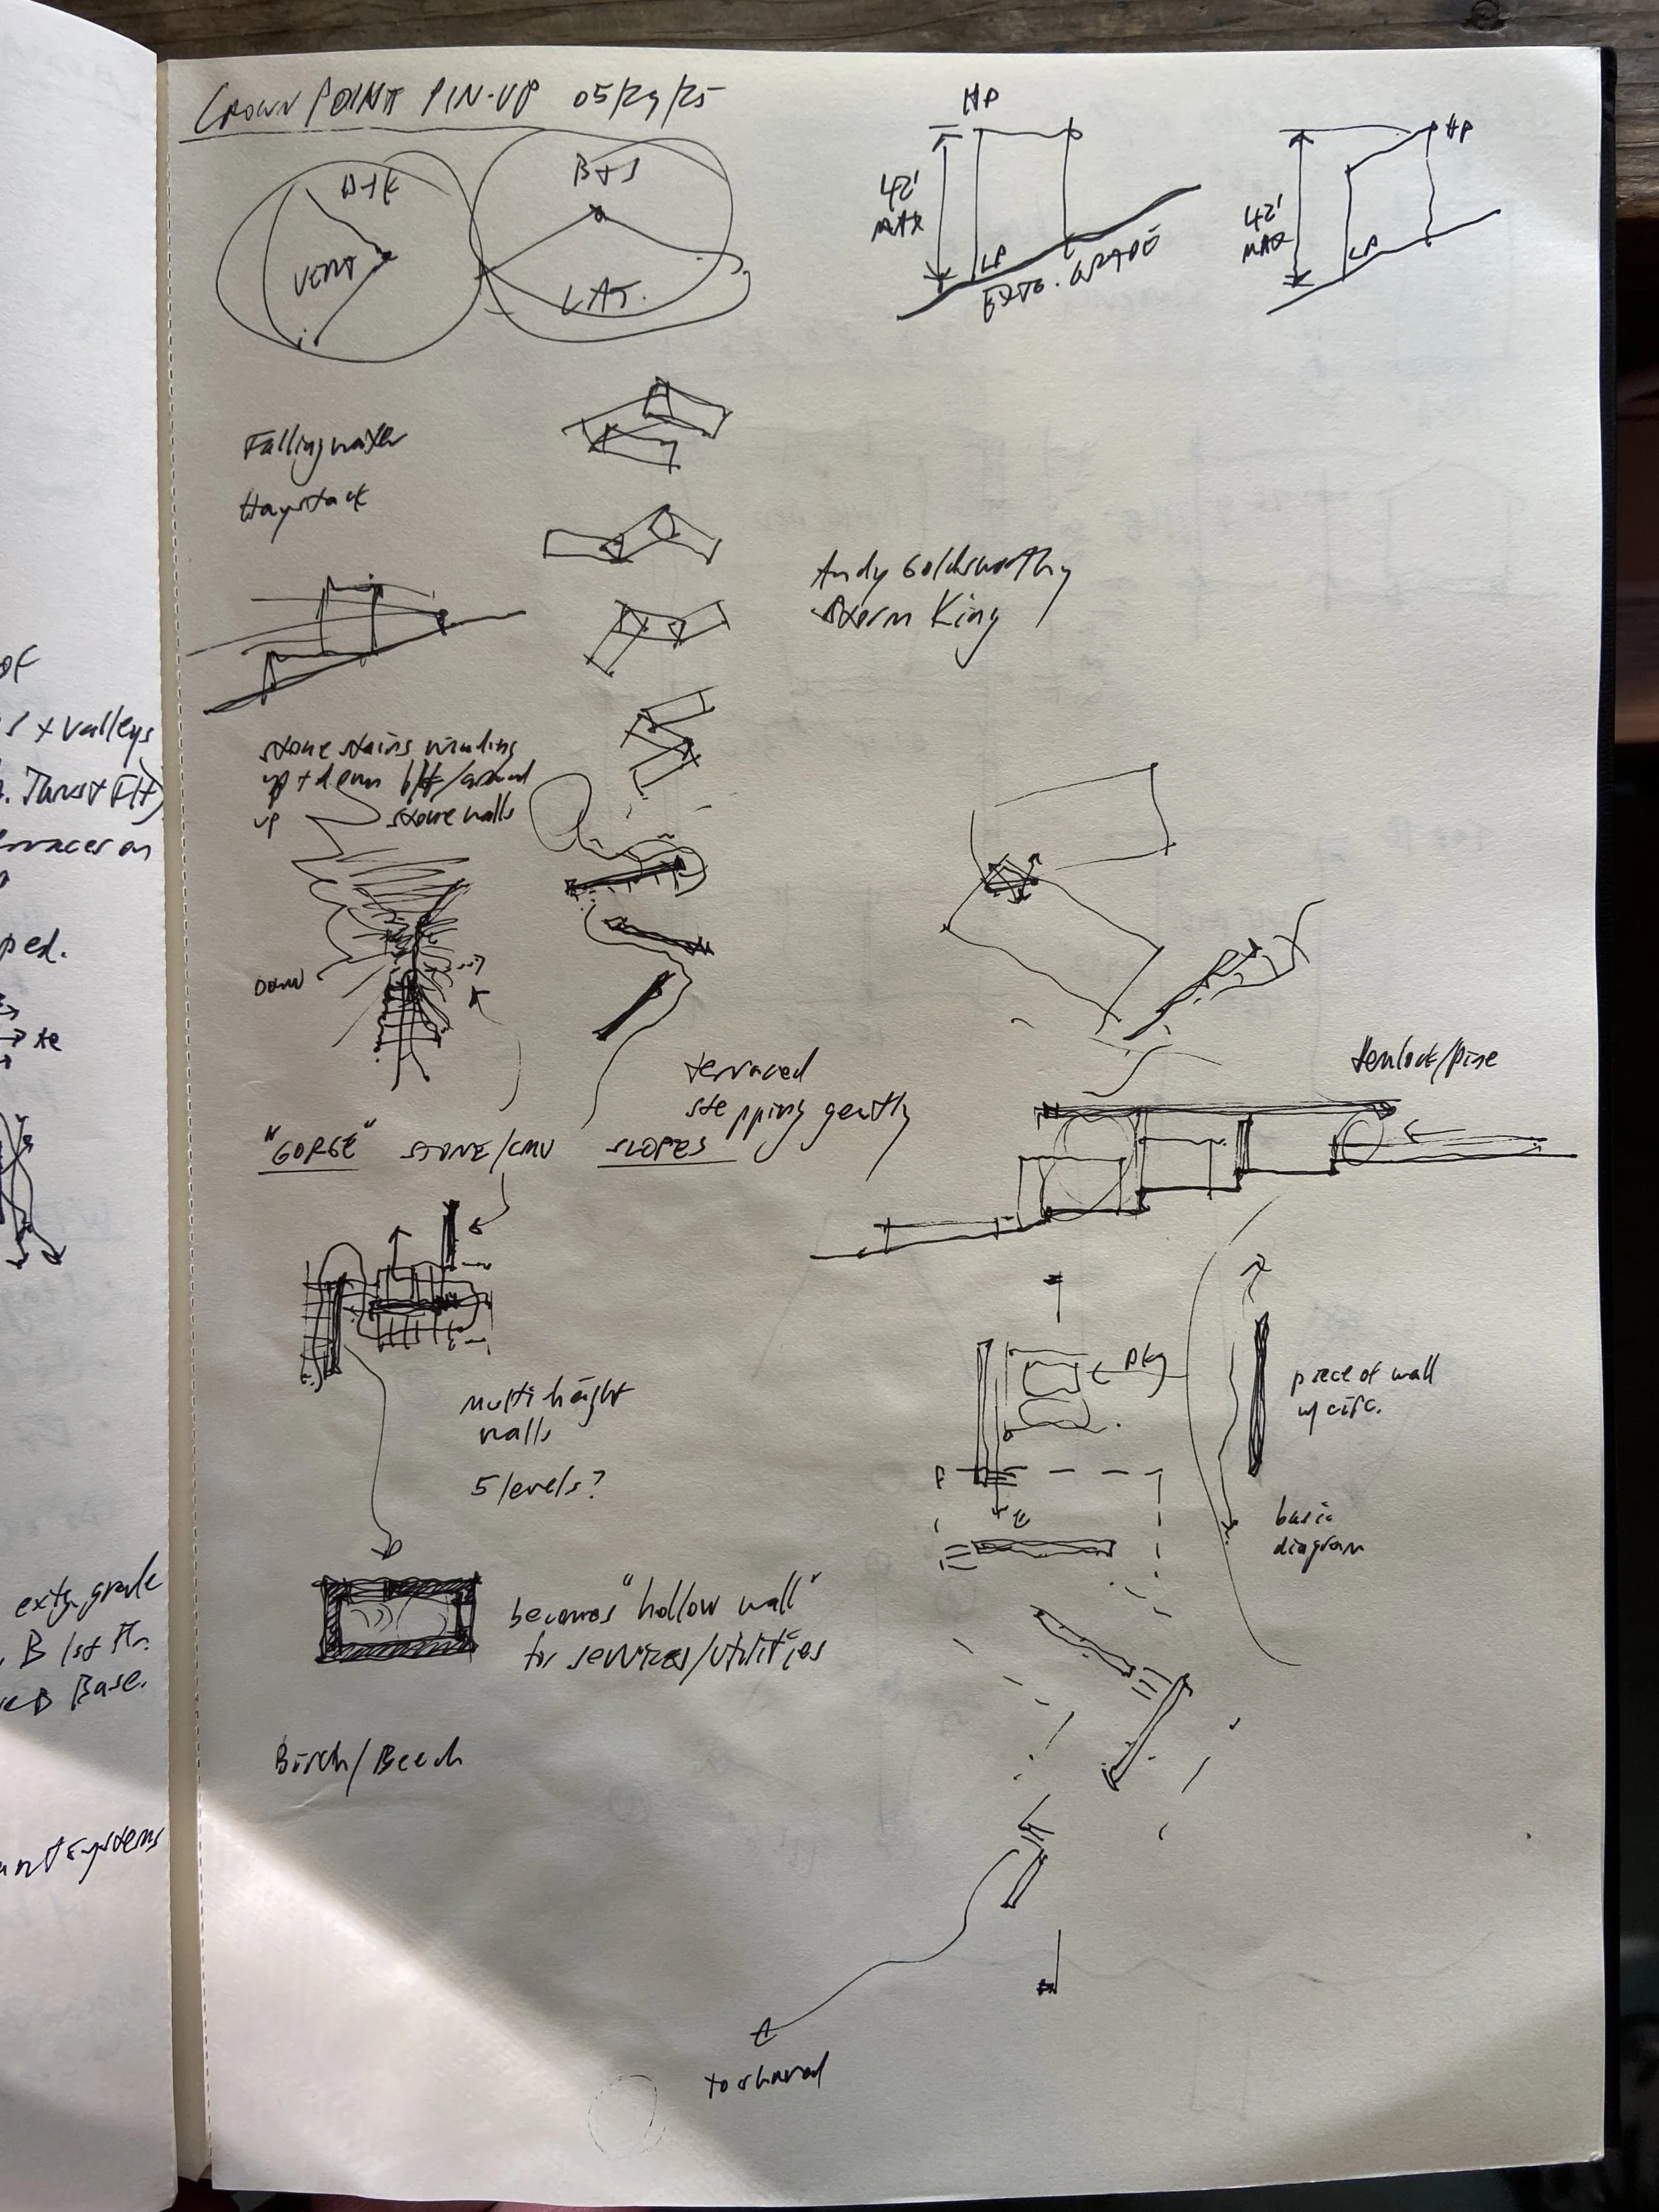 CROWN POINT PIN-UP 05/29/25
VERT
B+J
LAT.
HP
42'
MAX
LP
EXTG. GRADE
HP
42'
MAX
LP
Fallingwater
Haystack
Andy Goldsworthy
Storm King
stone stairs winding
up + down b/t /around
up stone walls
DOWN
"GORGE" STONE/CMU SLOPES
terraced
stepping gently
Hemlock/Pine
multi height
walls
5 levels?
pkg
piece of wall
w/ circ.
basic
diagram
becomes "hollow wall"
for services/utilities
Birch/Beech
to shared
OF
s + valleys
terraces on
ped.
extg. grade
B 1st Flr.
B Base.
systems